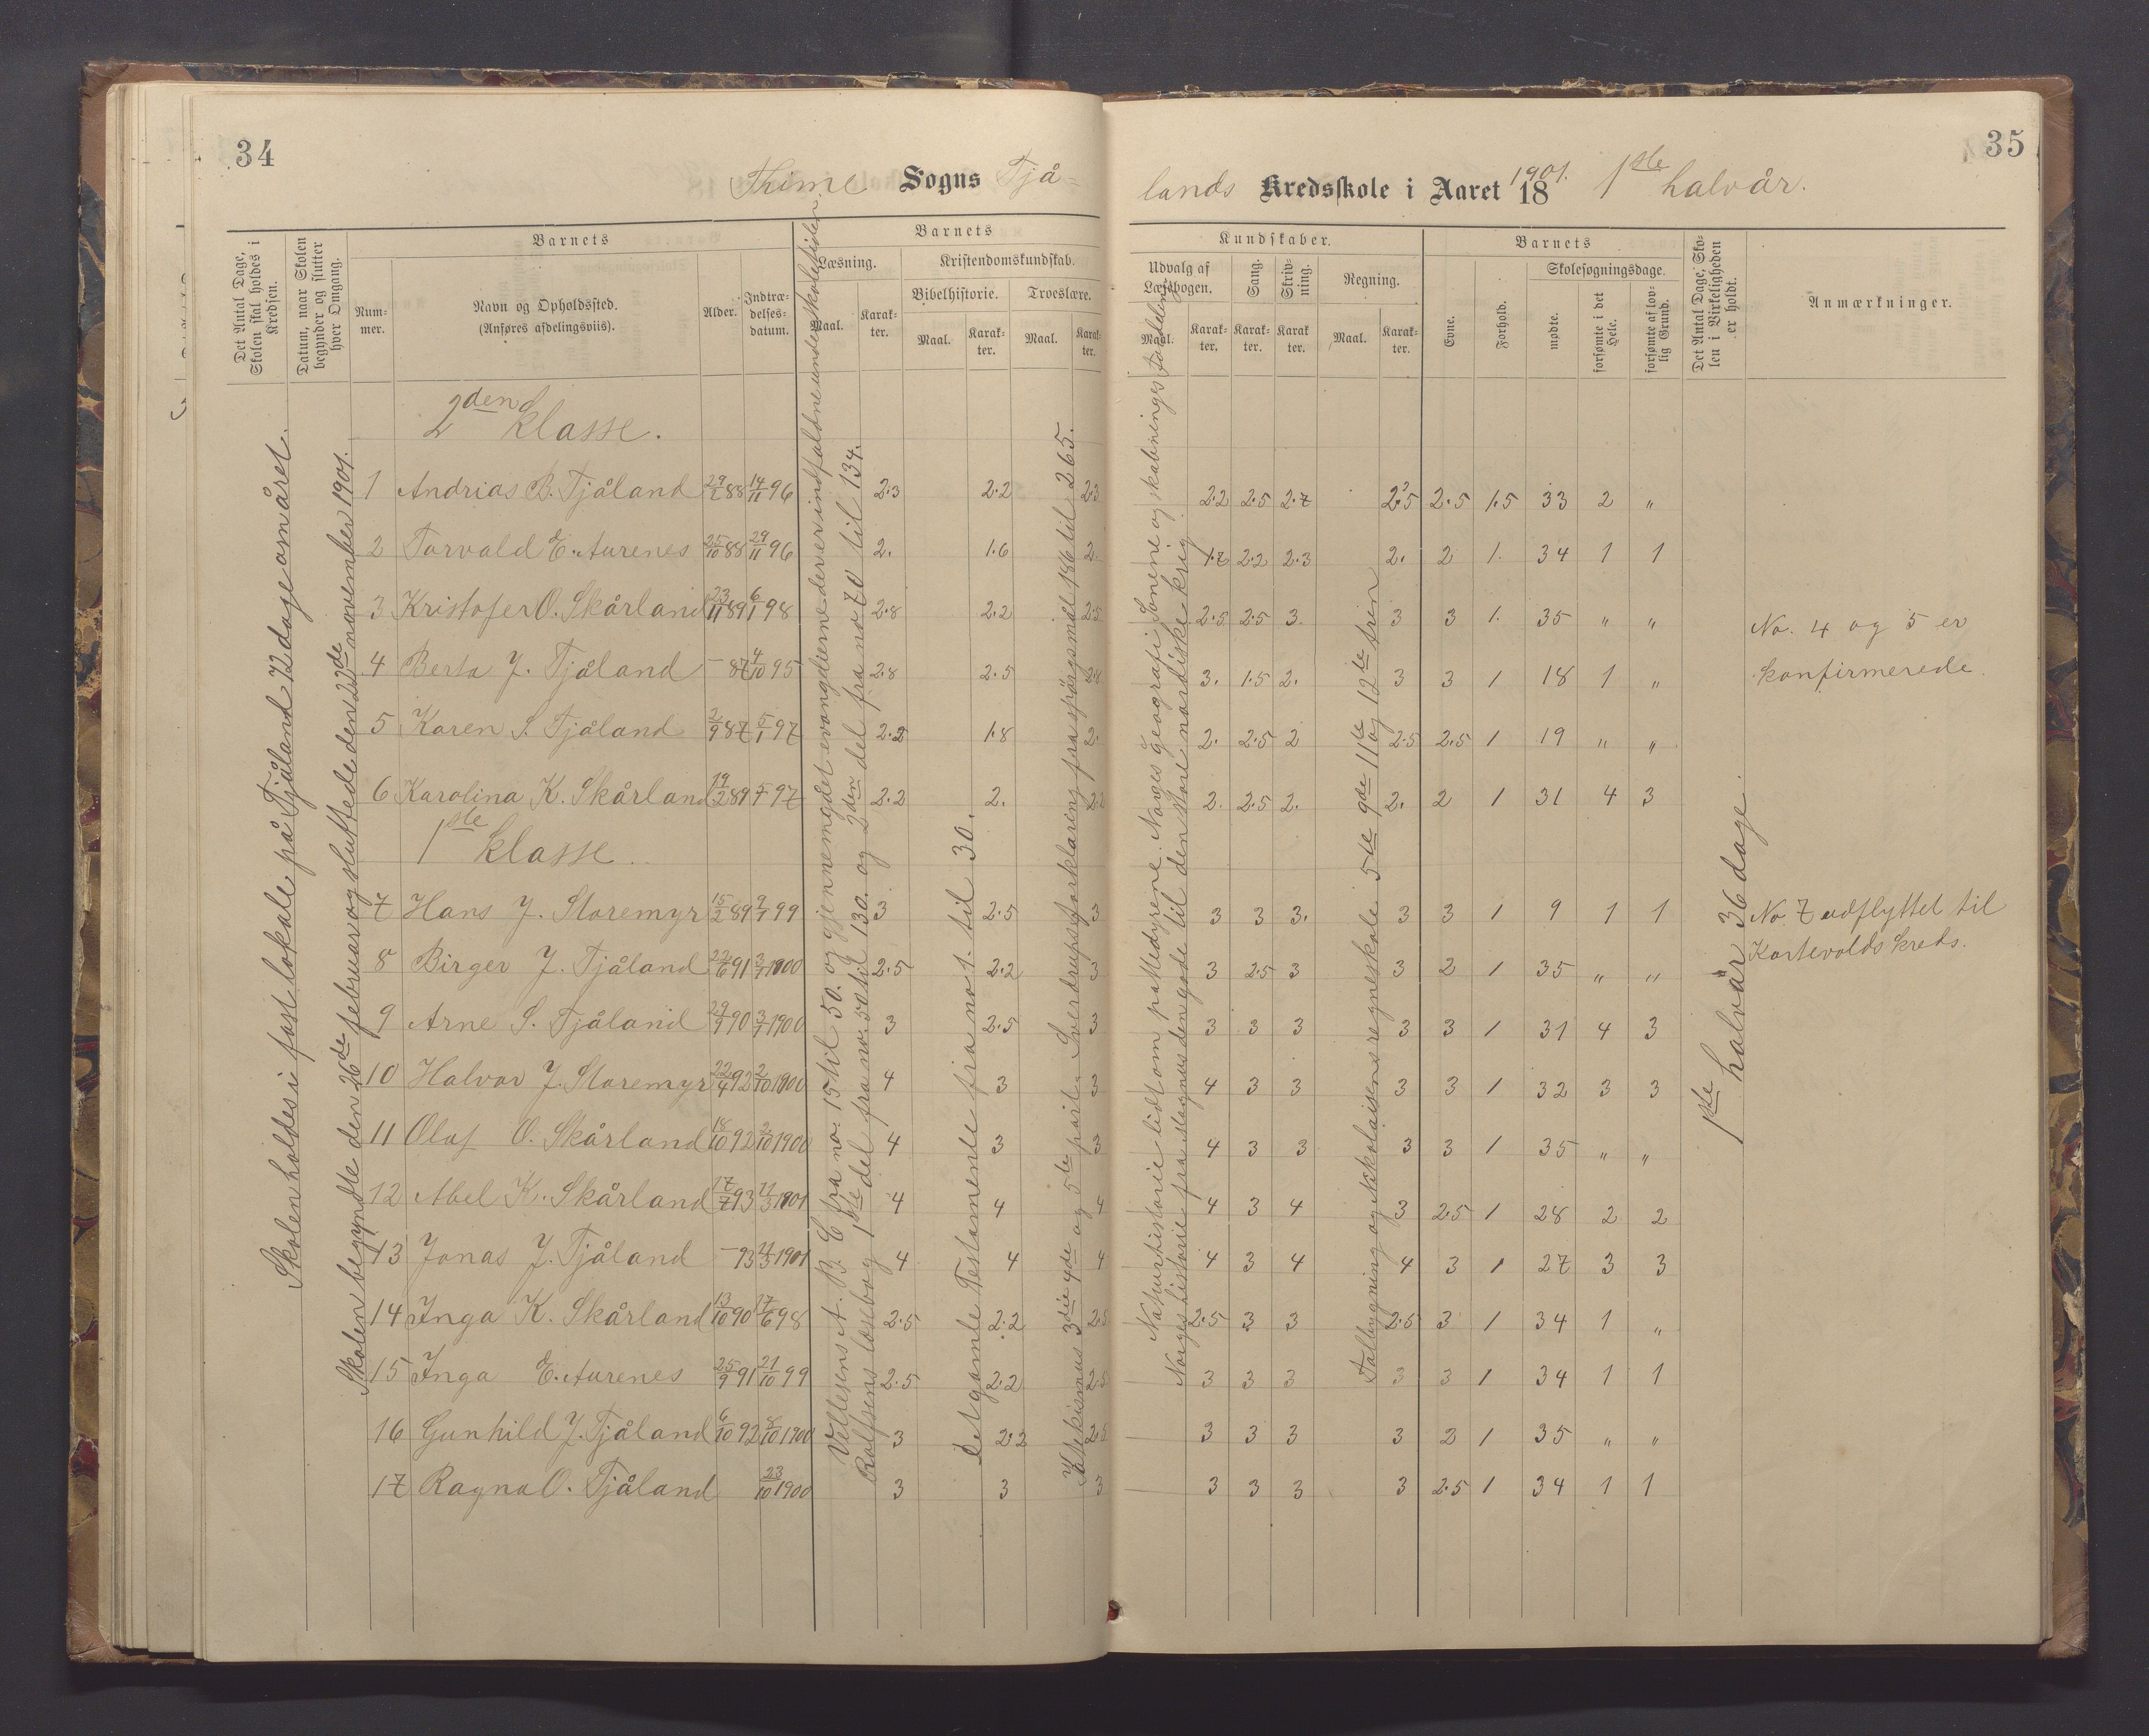 34
35
Thime Sogns Tjå-
lands Kredsskole i Aaret 18 1901. 1ste halvår.
Det Antal Dage, Skolen skal holdes i Kredsen.
Datum, naar Skolen begynder og slutter hver Omgang.
Barnets
Num-
mer.
Navn og Opholdssted.
(Anføres afdelingsviis).
Alder.
Indtræ-
delses-
datum.
Barnets
Læsning.
Maal.
Karak-
ter.
Kristendomskundskab.
Bibelhistorie.
Maal.
Karak-
ter.
Troeslære.
Maal.
Karak-
ter.
Kundskaber.
Udvalg af
Læsebogen.
Maal.
Karak-
ter.
Sang.
Karak-
ter.
Skriv-
ning.
Karak-
ter.
Regning.
Maal.
Karak-
ter.
Barnets
Evne.
Forhold.
Skolesøgningsdage.
mødte.
forsømte i det Hele.
forsømte af lov-
lig Grund.
Det Antal Dage, Sko-
len i Virkeligheden
er holdt.
Anmærkninger.
Skolen holdes i fast lokale på Tjåland 72 dage om året.
Skolen begyndte den 26de februar og sluttede den 23de november 1901.
Det gamle Testamente fra no. 1. til 30.
1ste halvår 36 dage.
2den klasse.
1 Andrias B. Tjåland 29/2 88 14/11 96 2.3 2.2 2.3 2.2 2.5 2.7 2.5 2.5 1.5 33 2 "
2 Torvald E. Aurenes 25/10 88 29/11 96 2. 1.6 2. 1.7 2.2 2.3 2. 2 1. 34 1 1
3 Kristofer O. Skårland 23/11 89 6/1 98 2.8 2.2 2.5 2.5 2.5 3. 3 3 1. 35 " "
4 Berta J. Tjåland – 87 4/10 95 2.8 2.5 2.8 3. 1.5 2. 3 3 1 18 1 "
5 Karen S. Tjåland 2/9 87 5/1 97 2.2 1.8 2. 2. 2.5 2 2.5 2.5 1 19 " "
6 Karolina K. Skårland 19/2 89 5/1 97 2.2 2. 2.2 2. 2.5 2. 2. 2 1 31 4 3
No. 4 og 5 er
konfirmerede.
1ste klasse.
7 Hans J. Storemyr 15/2 89 9/1 99 3 2.5 3 3 3 3. 3 3 1 9 1 1
No 7 udflyttet til
Kortevolds kreds.
8 Birger J. Tjåland 22/6 91 3/1 1900 2.5 2.2 3 3 2.5 3 3 2 1 35 " "
9 Arne S. Tjåland 29/9 90 3/1 1900 3 2.5 3 3 3 3 3 3 1 31 4 3
10 Halvor J. Storemyr 22/4 92 2/10 1900 4 3 3 4 3 3 3 3 1 32 3 3
11 Olaf O. Skårland 18/10 92 2/10 1900 4 3 3 4 3 3 3 3 1 35 " "
12 Abel K. Skårland 17/7 93 11/3 1901 4 4 4 4 3 4 3 2.5 1 28 2 2
13 Jonas J. Tjåland – 93 11/3 1901 4 4 4 4 3 4 4 3 1 27 3 3
14 Inga K. Skårland 13/10 90 17/6 98 2.5 2.2 2.5 2.5 3 3 2.5 3 1 34 1 "
15 Inga E. Aurenes 25/9 91 21/10 99 2.5 2.2 2.5 3 3 3 3 3 1 34 1 1
16 Gunhild J. Tjåland 6/10 92 8/10 1900 3 2.2 2.5 3 3 3 3 2 1 35 " "
17 Ragna O. Tjåland 23/10 1900 3 3 3 3 3 3 3 2.5 1 34 1 1
Vellesens A. B. C fra no. 15 til 50. og gjennemgået evangelierne der er indfaldne under skoletiden.
Rolfsens læsebog 1ste del fra no: 50 til 130. og 2den del fra no 70 til 134.
Katekismus 3die 4de og 5te part. Sverdrups forklaring fra spørgsmål 186 til 265.
Naturhistorie lidt om pattedyrene. Norges geografi
Norges historie fra Magnus den gode til den store nordiske krig
Talbygning og Nikolaisens regneskole 5te 9de 11te og 12te trin